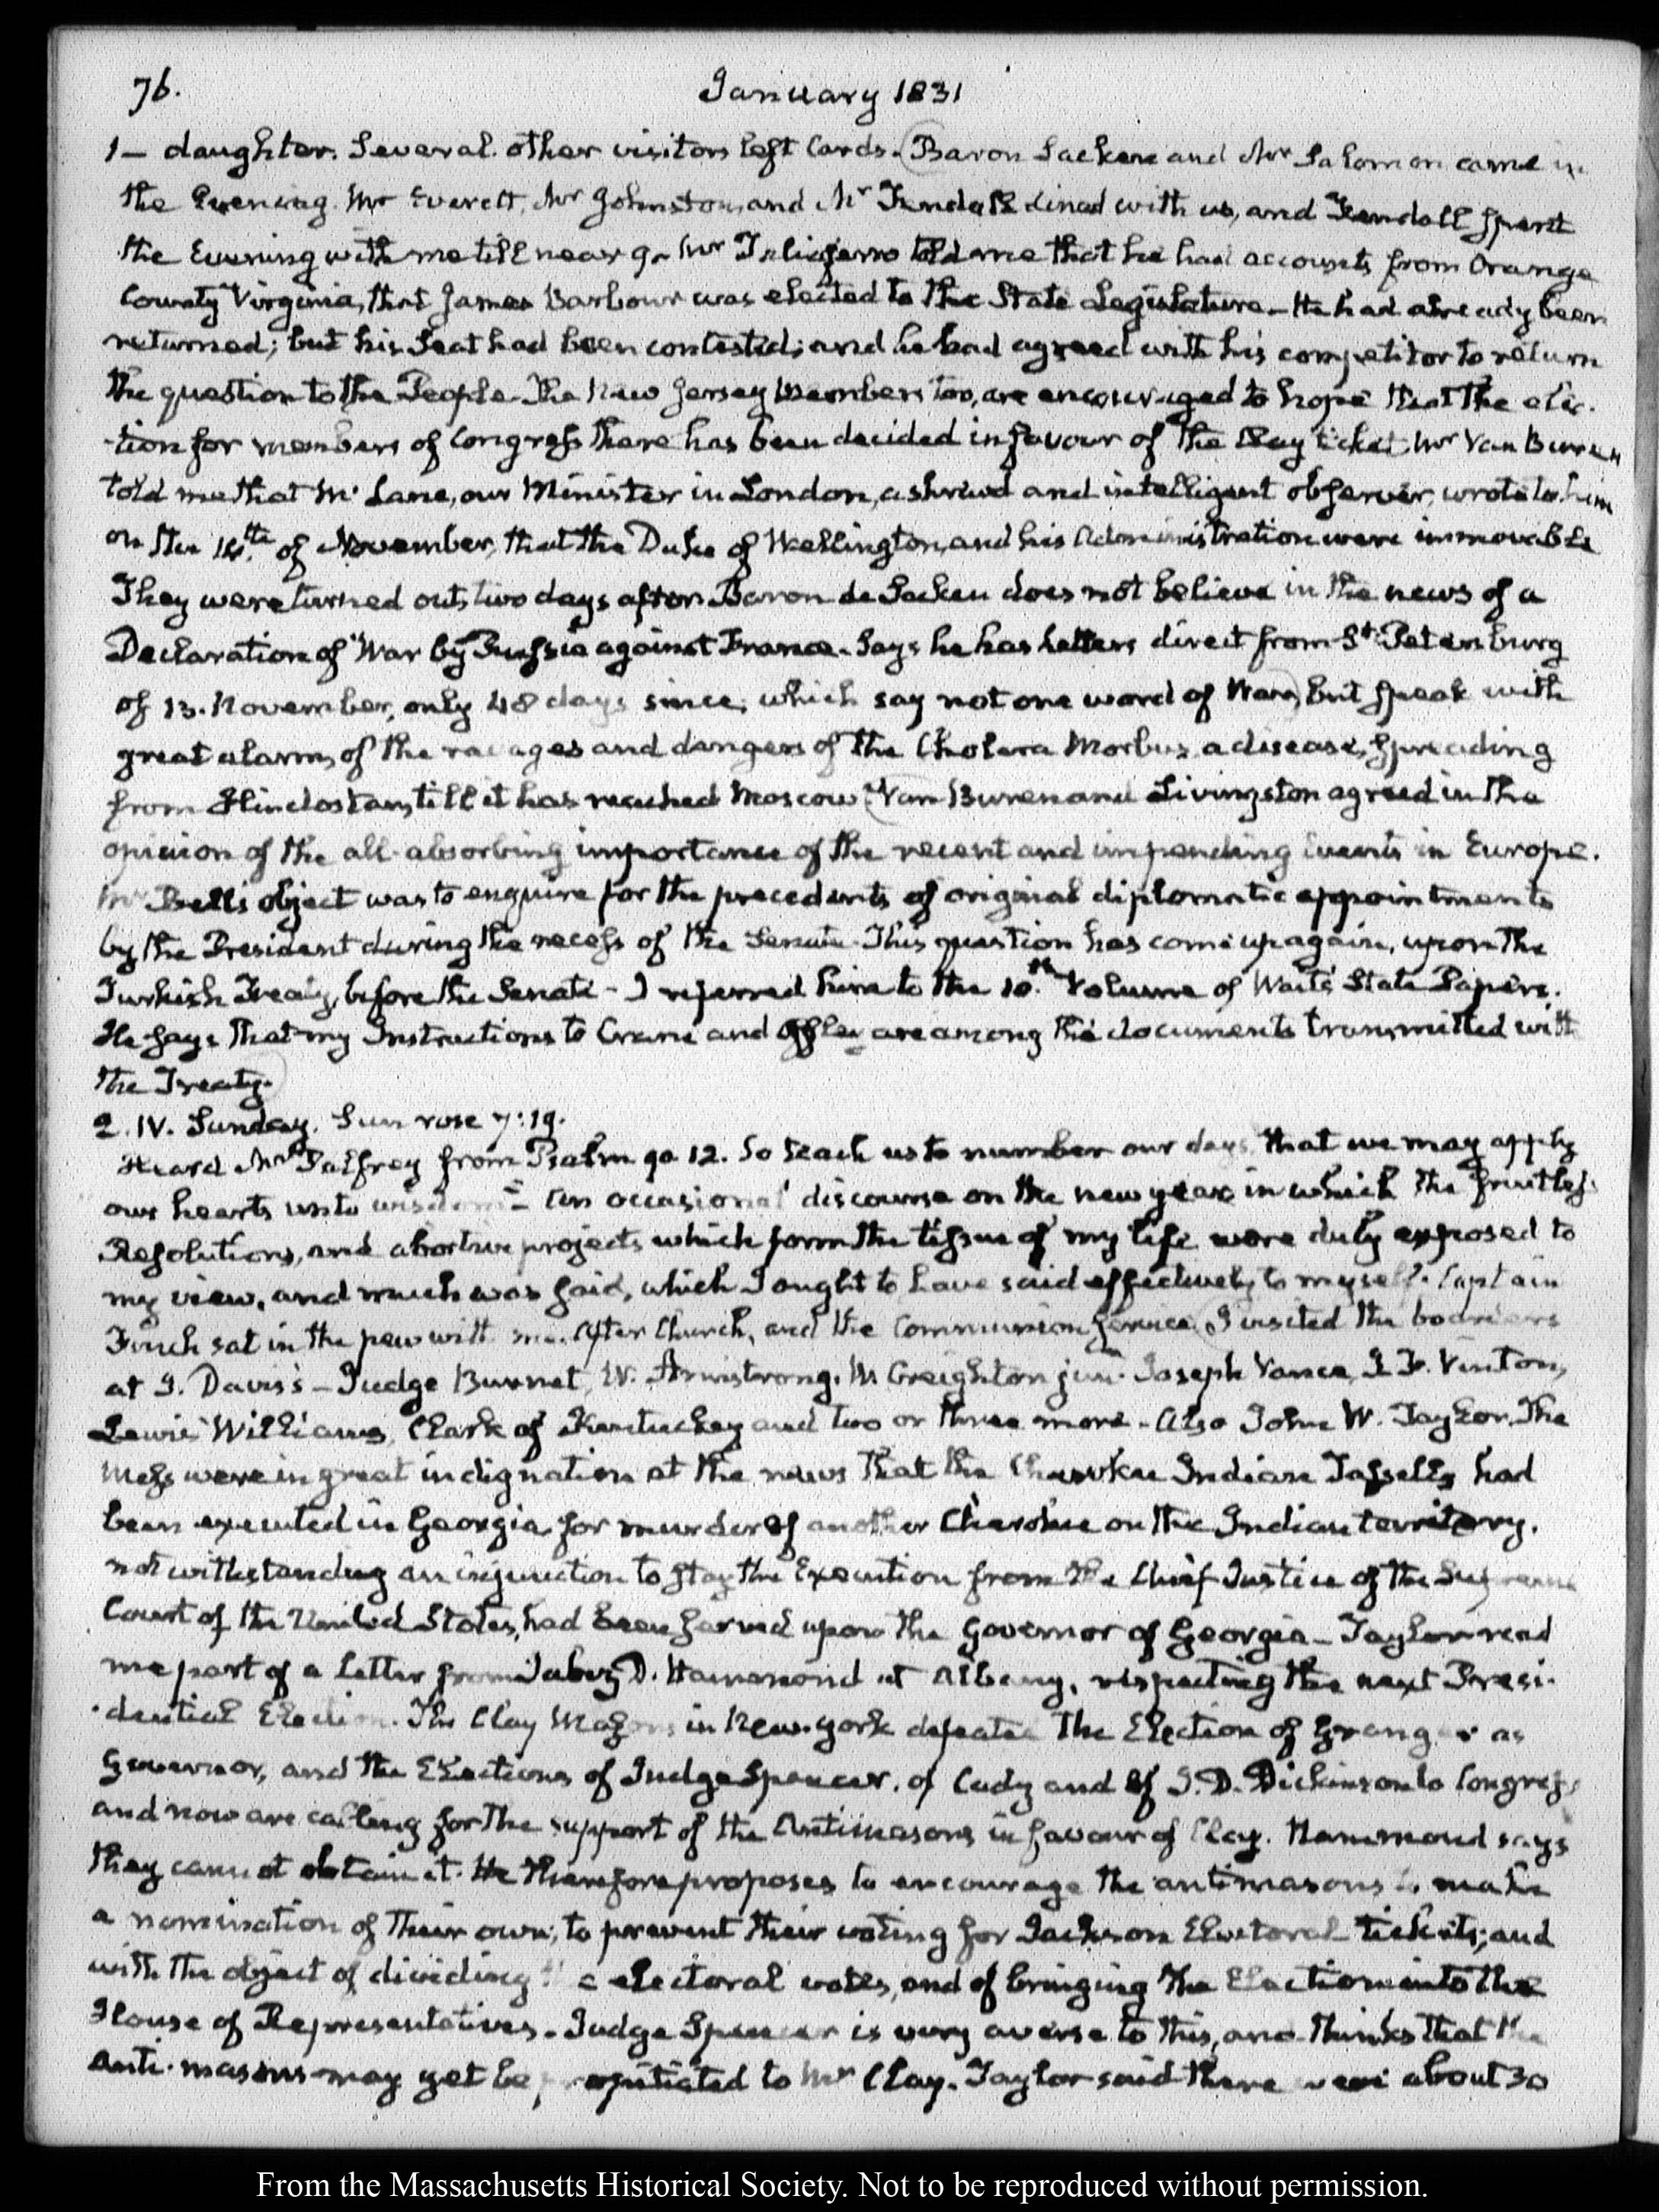 76. January 1831
1 — daughter. Several other visitors left Cards. Baron Sacken and Mr Salomon came in
the Evening. Mr Everett, Mr Johnston, and Mr Kendall dined with us, and Kendall spent
the Evening with me till near 9. Mr Taliaferro told me that he had accounts from Orange
County Virginia, that James Barbour was elected to the State Legislature. He had already been
returned; but his Seat had been contested; and he had agreed with his competitor to return
the question to the People. The New Jersey Members too, are encouraged to hope that the elec-
-tion for members of Congress there has been decided in favour of the Clay ticket. Mr Van Buren
told me that Mr Lane, our Minister in London, a shrewd and intelligent observer, wrote to him
on the 14th of November, that the Duke of Wellington, and his Administration were immovable
They were turned out two days after. Baron de Sacken does not believe in the news of a
Declaration of War by Russia against France. Says he has Letters direct from St. Petersburg
of 13. November, only 48 days since, which say not one word of War, but speak with
great alarm, of the ravages and dangers of the Cholera Morbus, a disease, spreading
from Hindostan, till it has reached Moscow. Van Buren and Livingston agreed in the
opinion of the all-absorbing importance of the recent and impending Events in Europe.
Mr Bell's object was to enquire for the precedents of original diplomatic appointments
by the President during the recess of the Senate. This question has come up again, upon the
Turkish Treaty, before the Senate — I referred him to the 10th Volume of Wait's State Papers.
He says that my Instructions to Crane and Offley are among the documents transmitted with
the Treaty.
2. IV. Sunday. Sun rose 7:19.
Heard Mr Palfrey from Psalm 90 12. So teach us to number our days, that we may apply
our hearts unto wisdom — An occasional discourse on the new year in which the fruitless
Resolutions, and abortive projects which form the tissue of my life were duly exposed to
my view, and much was said, which I ought to have said effectively to myself. Captain
Finch sat in the pew with me. After Church, and the Communion Service I visited the boarders
at G. Davis's — Judge Burnet, W. Armstrong, W Creighton junr. Joseph Vance, S. F. Vinton,
Lewis Williams, Clark of Kentucky and two or three more. Also John W. Taylor. The
Mess were in great indignation at the news that the Cherokee Indian Tassells had
been executed in Georgia for murder of another Cherokee on the Indian territory,
notwithstanding an injunction to stay the Execution from the Chief Justice of the Supreme
Court of the United States, had been served upon the Governor of Georgia — Taylor read
me part of a letter from Jabez D. Hammond at Albany, respecting the next Presi-
-dential Election. The Clay Masons in New-York defeated the Election of Granger as
Governor, and the Elections of Judge Spencer, of Cady and of J. D. Dickinson to Congress
and now are calling for the support of the Antimasons in favour of Clay. Hammond says
they cannot obtain it. He therefore proposes to encourage the antimasons to make
a nomination of their own; to prevent their voting for Jackson Electoral tickets; and
with the object of dividing the electoral votes, and of bringing the Election into the
House of Representatives. Judge Spencer is very averse to this, and thinks that the
anti-masons may yet be propitiated to Mr Clay. Taylor said there were about 30
From the Massachusetts Historical Society. Not to be reproduced without permission.